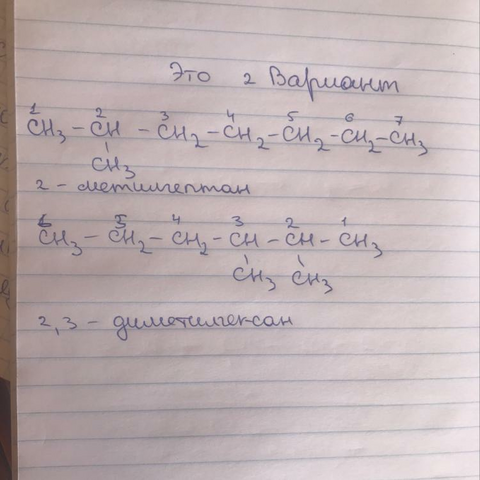 Это 2 Вариант
1 2 3 4 5 6 7
CH3 - CH - CH2 - CH2 - CH2 - CH2 - CH3
CH3
2 - метилгептан
6 5 4 3 2 1
CH3 - CH2 - CH2 - CH - CH - CH3
CH3 CH3
2,3 - диметилгексан